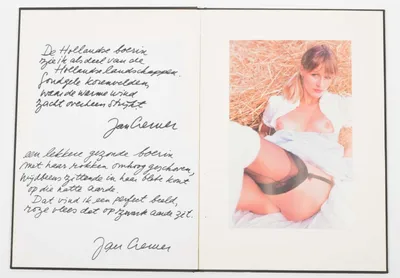 De Hollandse boerin
zie ik als deel van de
Hollandse landschappen.
Goudgele korenvelden,
waar de warme wind
zacht overheen strijkt
Jan Cremer
een lekkere gezonde boerin
met haar rokken omhoog geschoven,
Wijdbeens zittende in haar blote kont
op die natte aarde.
Dat vind ik een perfect beeld,
roze vlees dat op zwarte aarde zit.
Jan Cremer